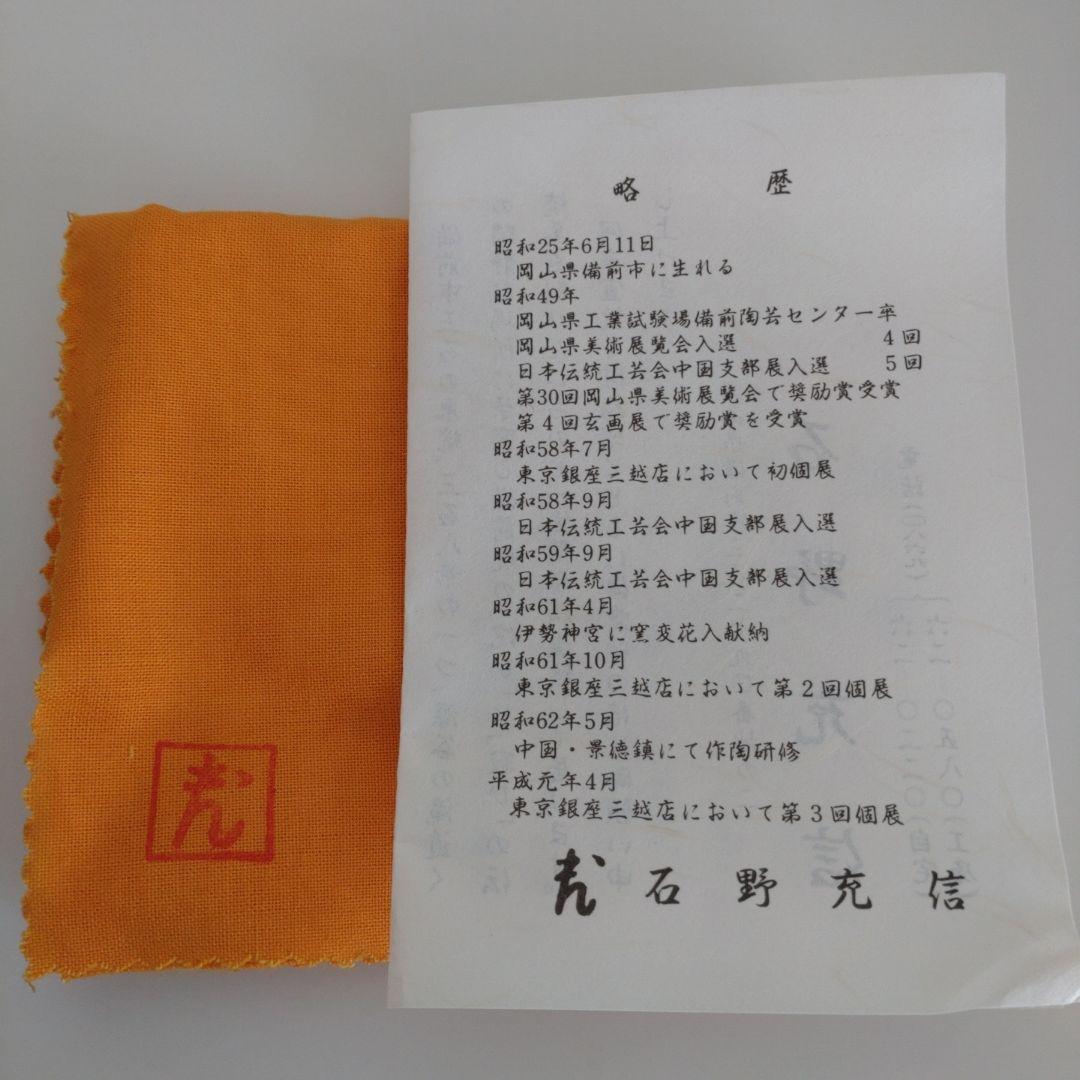 略歴
昭和25年6月11日
岡山県備前市に生れる
昭和49年
岡山県工業試験場備前陶芸センター卒
岡山県美術展覧会入選 4回
日本伝統工芸会中国支部展入選 5回
第30回岡山県美術展覧会で奨励賞受賞
第4回玄画展で奨励賞を受賞
昭和58年7月
東京銀座三越店において初個展
昭和58年9月
日本伝統工芸会中国支部展入選
昭和59年9月
日本伝統工芸会中国支部展入選
昭和61年4月
伊勢神宮に窯変花入献納
昭和61年10月
東京銀座三越店において第2回個展
昭和62年5月
中国・景徳鎮にて作陶研修
平成元年4月
東京銀座三越店において第3回個展
石野充信